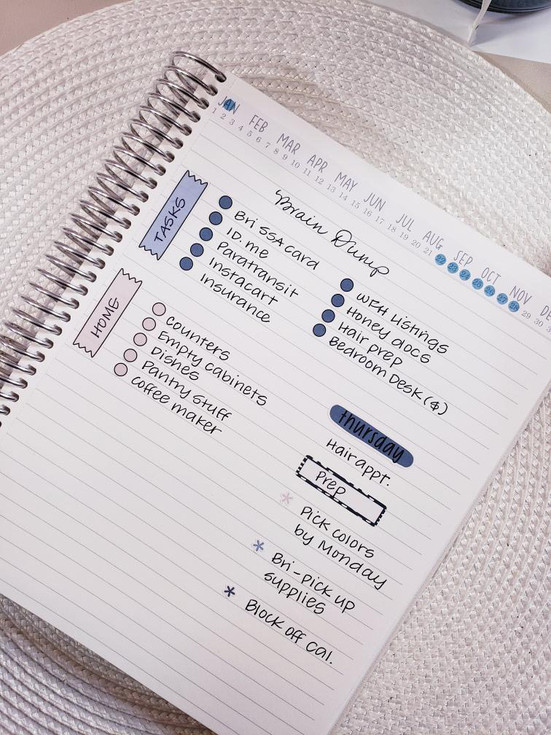 JAN FEB MAR APR MAY JUN JUL AUG SEP OCT NOV DE
1 2 3 4 5 6 7 8 9 10 11 12 13 14 15 16 17 18 19 20 21 22 23 24 25 26 27 28 29 30
Brain Dump
TASKS
Bri SSA card
ID.me
Paratransit
Instacart
Insurance
WFH Listings
Honey docs
Hair prep
Bedroom Desk (&)
HOME
Counters
Empty cabinets
Dishes
Pantry stuff
Coffee maker
thursday
Hair appt.
Prep
* Pick colors
by Monday
* Bri-Pick up
supplies
* Block off cal.